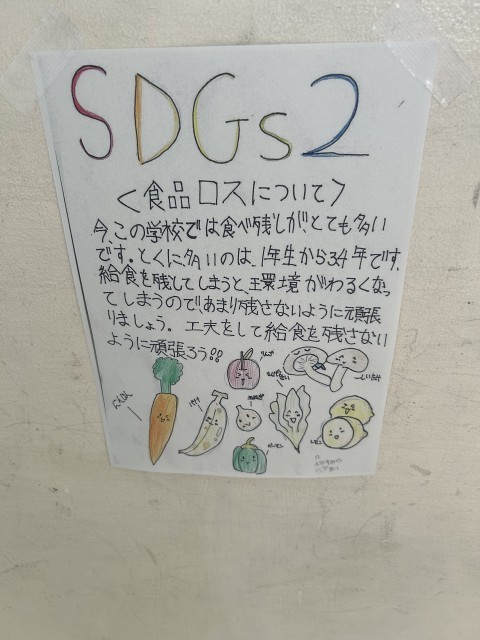 SDGs2
<食品ロスについて>
今、この学校では食べ残しが、とても多い
です。とくに多いのは、1年生から34年です。
給食を残してしまうと、環境がわるくなっ
てしまうのであまり残さないように頑張
りましょう。工夫をして給食を残さない
ように頑張ろう!!
にんじん
りんご
しいたけ
レモン